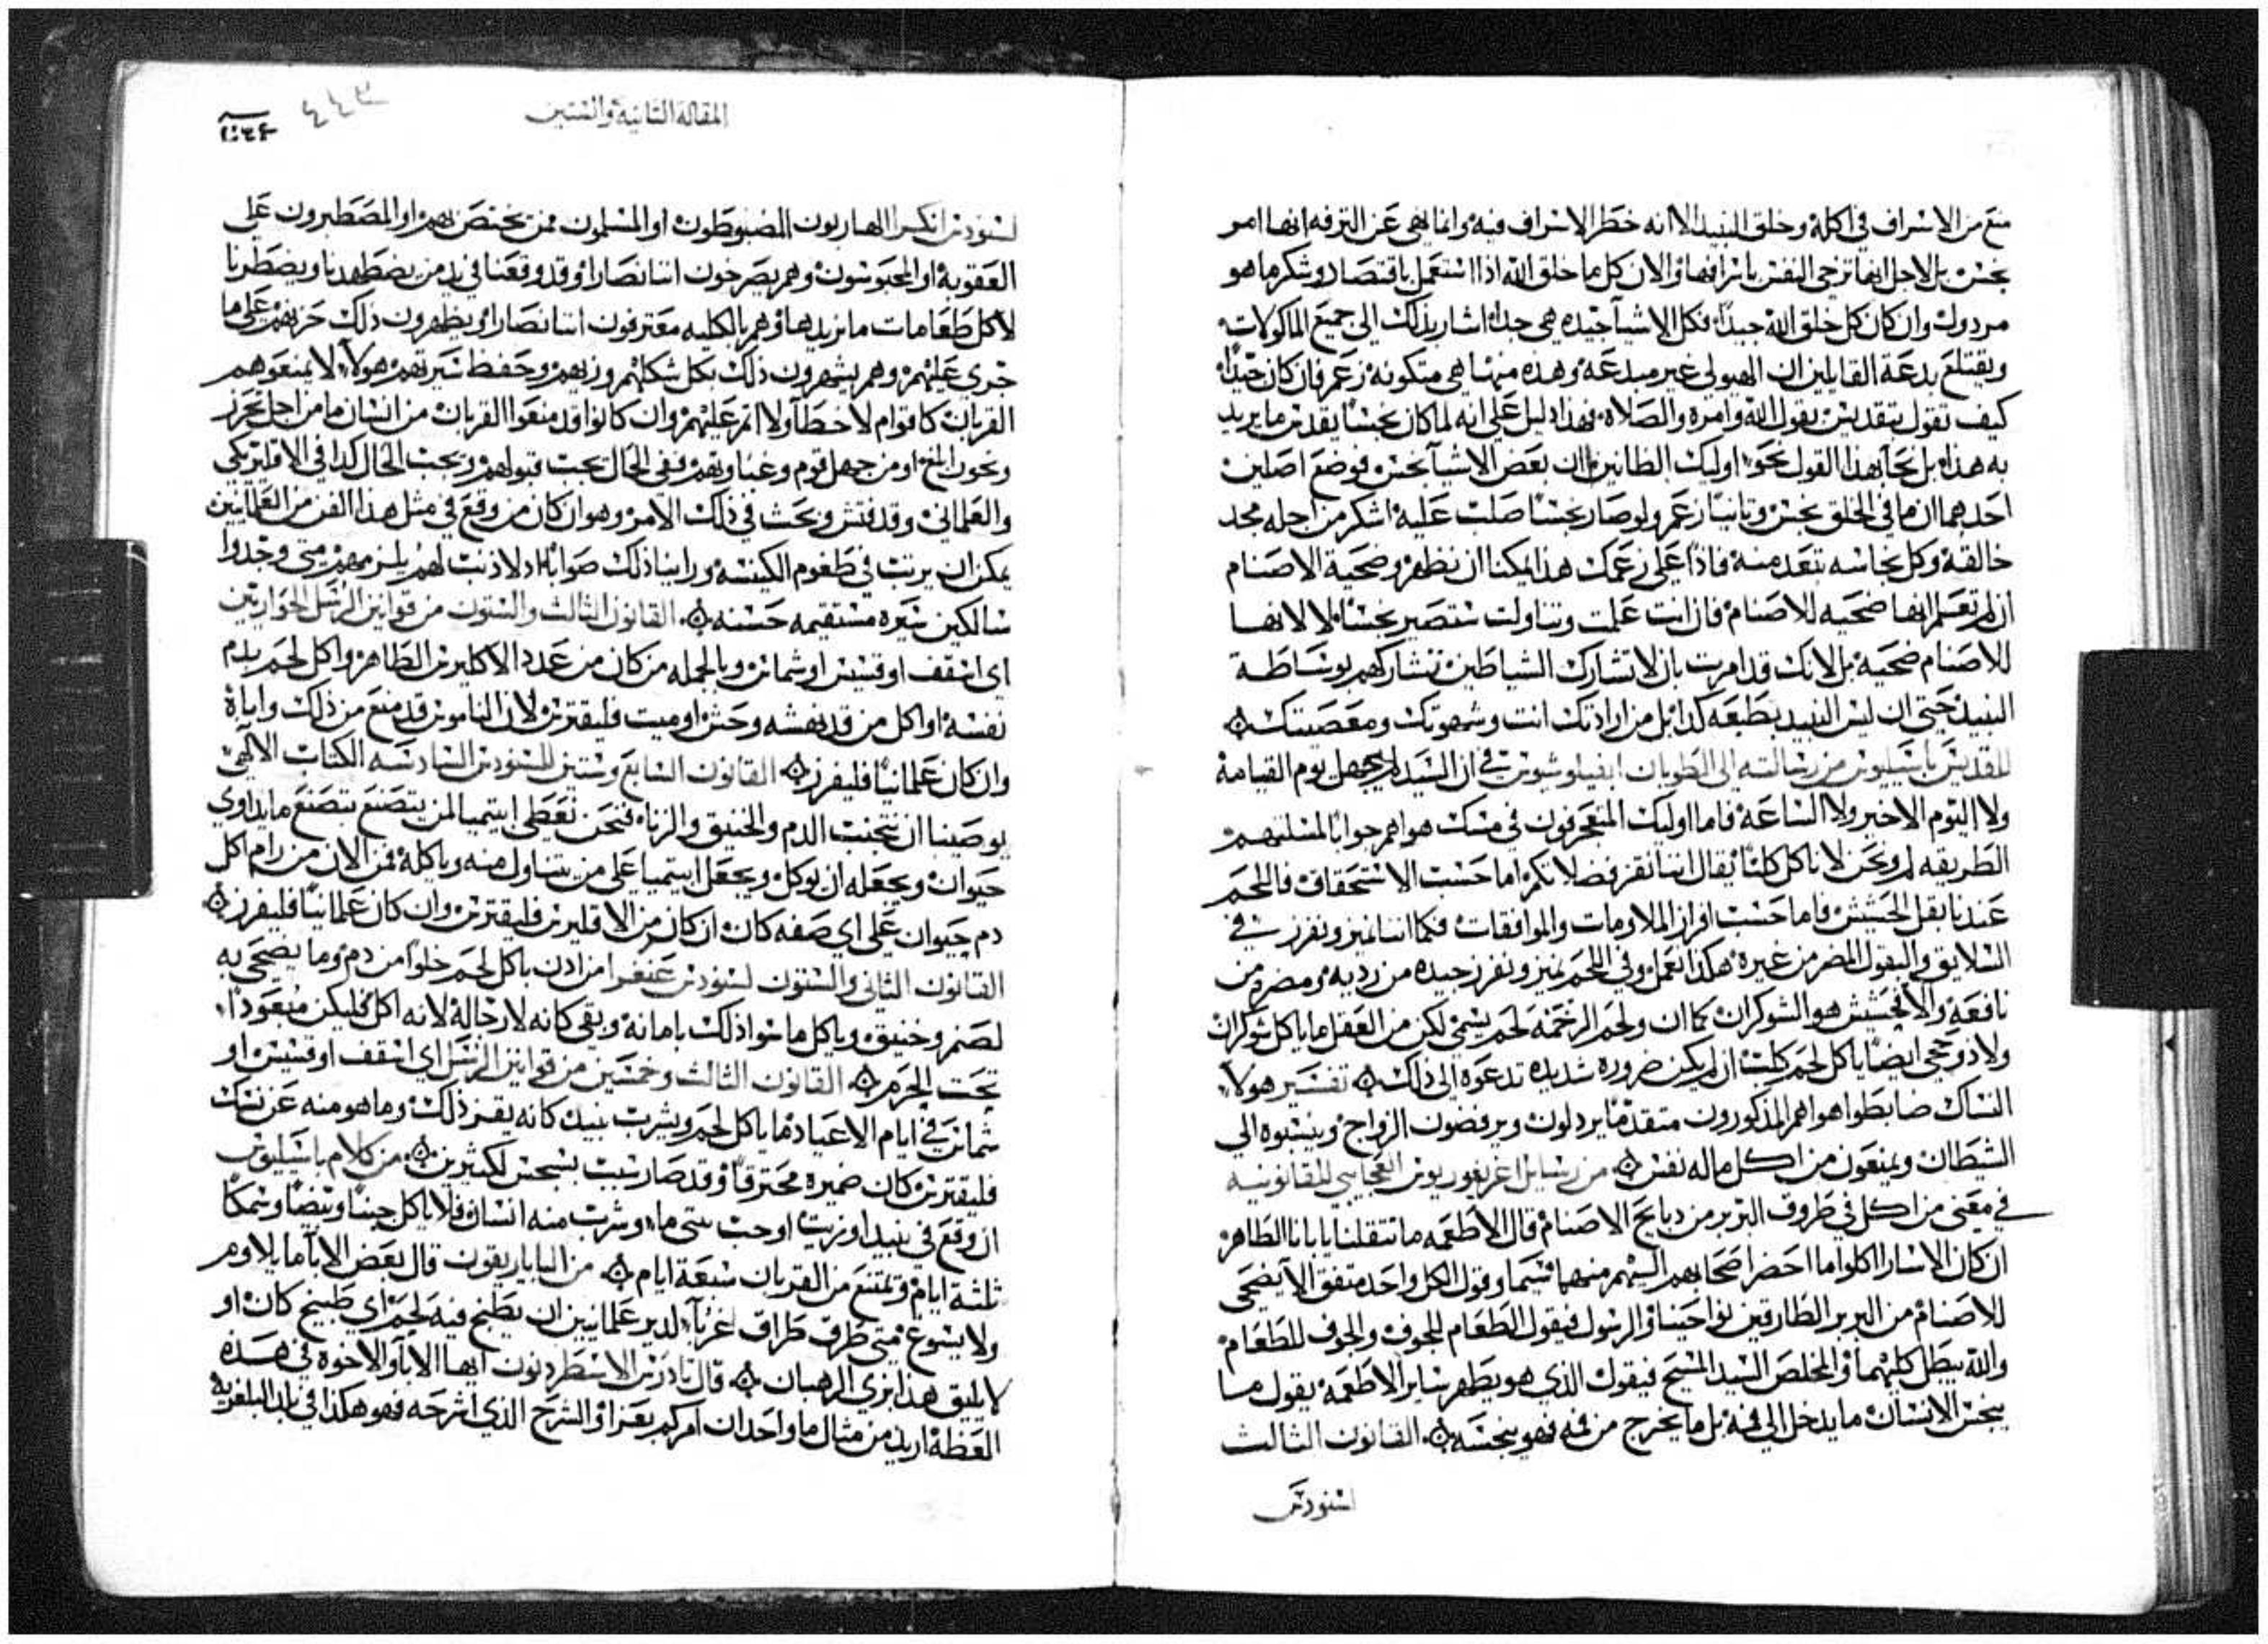 منع من الاسراف في اكله وخلق النبيذ الا انه حظر الاسراف فيه وانما نهى عن الترفه انها امر
نجس بل لاجل انها ترخي النفس باسرافها والان كل ما خلق الله اذا استعمل باقتصاد وشكر ما هو
مردول وان كان كل خلق الله جيدا فكل الاشيآ جيده هي جدا اشار بذلك الى جميع الماكولات
ويقتلع بدعة القايلين ان الهيولي غير مبدعه وهذه منها هي متكونه زعم فان كان جيدا
كيف تقول يتقدس بقول الله وامره والصلاه فهذا دليل على انه لما كان نجسا يقدس ما يريد
به هذا بل نحا بهذا القول نحو اوليك الظانين ان بعض الاشيآ نجس فوضع اصلين
احدهما ان ما في الخلق نجس وثانيا زعم ولو صار نجسا صلب عليه اشكر من اجله مجد
خالقه وكل نجاسه تبعد منه فاذا على زعمك هذا يمكنا ان نطهر وضحية الاصنام
ان لم تعلم انها ضحيه للاصنام فان انت علمت وتناولت ستصير نجسا لا لانها
للاصنام ضحيه بل لانك قد امرت بان لا تشارك الشياطين تشاركهم بوساطة
النبيذ حتى ان ليس النبيد بطبعه كدا بل من ارادتك انت وشهوتك ومعصيتك
للقديس باسيليوس من رسالته الى الطوبان انفيلوشيوس في ان السيد لم يجهل يوم القيامة
ولا اليوم الاخير ولا الساعة فاما اوليك المتعجرفون في مسك هواهم جوابا لمسلتهم
الطريقه لم نحن لا ناكل كلنا يقال اننا نقرفضلا نكم اما حسب الاستحقاق فاللحم
عندنا بقل الحشيش واما حسب افراز الملاومات والموافقات فكما اننا نميز ونفرز في
السلايق والبقول المضر من غيره هكذا نعمل وفي اللحم نميز ونفرز جيده من رديه ومضره من
نافعه والا فحشيش هو الشوكران كما ان ولحم الرخمة لحم يسمى لكن من العقل ما ياكل شوكران
ولا ذو حجى ايضا ياكل لحم كلب ان لم يكن ضروره شديده تدعوه الى ذلك تفسير هولاء
النساك ضابطوا هواهم المذكورون متقدما يردلون ويرفضون الزواج وينسبوه الى
الشيطان ويمنعون من اكل ما له نفس من رسايل اغريغوريوس العجايبي القانونيه
في معنى من اكل في ظروف البربر من دبايح الاصنام قال الاطعمه ما تثقلنا يا بابا الطاهر
ان كان الاسارا اكلوا ما احضر اصحابهم اليهم منهما سيما وقول الكل واحد متفق الا يضحى
للاصنام من البربر الطارقين نواحينا والرسول فيقول الطعام للجوف والجوف للطعام
والله يبطل كليهما والمخلص السيد المسيح فيقول الذي هو يطهر ساير الاطعمه يقول ما
ينجس الانسان ما يدخل الى فمه بل ما يخرج من فمه فهو ينجسه القانون الثالث
لسنودس
المقالة الثانية والستين
٤٤٣
لسنودس انكيرا الهاربون المضبوطون او المسلمون ممن يختص بهم او المصطبرون على
العقوبة او المحبوسون وهم يصرخون اننا نصارا وقد وقعنا في يد من يضطهدنا ويضطرنا
لاكل طعامات ما نريدها وهم بالكليه معترفون اننا نصارا ويظهرون ذلك حزنهم على ما
جرى عليهم وهم يشهرون ذلك بكل شكلهم وزيهم وحفظ سيرتهم هولآء لا تمنعوهم
القربان كاقوام لا خطآ ولا اثم عليهم وان كانوا قد منعوا القربان من انسان ما من اجل تحرز
ونحون الخ او من جهل قوم وغباوتهم ففي الحال يجب قبولهم ويجب الحال كدا في الاقليريكي
والعلماني وقد فتش وبحث في ذلك الامر وهو ان كان من وقع في مثل هذا الفن من العلمانيين
يمكن ان يرتب في طغوم الكنيسه وراينا ذلك صوابا اد لا ذنب لهم يلزمهم متى وجدوا
سالكين سيره مستقيمه حسنه القانون الثالث والستون من قوانين الرسل الحواريين
اي اسقف او قسيس او شماس وبالجمله من كان من عدد الاكليرس الطاهر واكل لحم بدم
نفسه او اكل من قد نهشه وحش او ميت فليقترس لان الناموس قد منع من ذلك واباه
وان كان علمانيا فليفرز القانون السابع وستين للسنودس السادسه الكتاب الالهي
يوصينا ان نتجنب الدم والخنيق والزناء فنحن نعطى ابتيميا لمن يتصنع بتصنع ما يداوي
حيوان ويجعله ان يوكل ويجعل ابتيميا على من يتناول منه وياكله فمن الان من رام اكل
دم حيوان على اي صفه كان ان كان من الاقليرس فليقترس وان كان علمانيا فليفرز
القانون الثاني والستون لسنودس غنغرا من ادن باكل لحم خلوا من دم وما يضحى به
لصنم وخنيق وياكل ما سوا ذلك بامانه وبقي كانه لا رجا له لانه اكل فليكن مبعودا
تحت الجرم القانون الثالث وخمسين من قوانين الرسل اي اسقف او قسيس او
شماس في ايام الاعياد ما ياكل لحم ويشرب نبيد كانه يقز ذلك وما هو منه عن نسك
فليقترس كان ضميره محترقا وقد صار سبب بسجس لكثيرين من كلام باسيليوس
ان وقع في نبيد او زيت او جب شي ما وشرب منه انسان فلا ياكل جبنا وبيضا وسمكا
ثلثة ايام ويمتنع من القربان سبعة ايام من الباباريقون قال بعض الابآ ما يلاوم
ولا يسوغ متى طرق طراق غربآء لدير علمانيين ان يطبخ فيه لحم اي طبيخ كان او
لا يليق هذا بزي الرهبان قال ثادرس الاسطردنون ايها الابآ والاخوه في هذه
العظة اريد من مثال ما واحد ان امركم بعزا والشرح الذي اشرحه فهو هكذا في بلد البلغريه